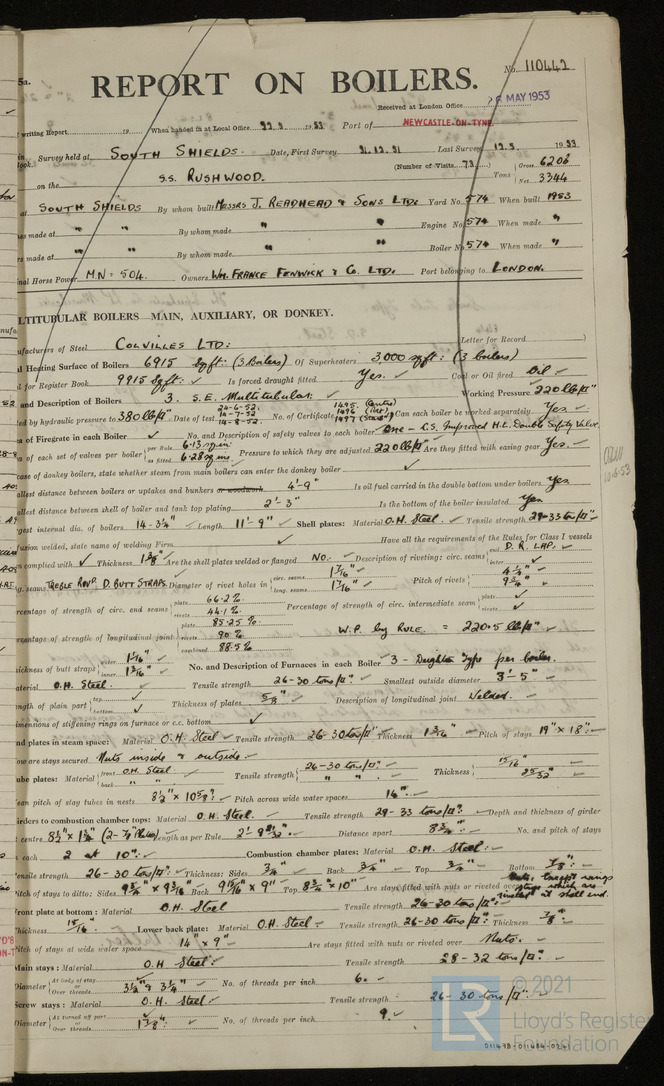 5a.
REPORT ON BOILERS.
No. 110442
Received at London Office 6 MAY 1953
writing Report 19 When handed in at Local Office 19 53 Port of NEWCASTLE-ON-TYNE
Survey held at SOUTH SHIELDS. Date, First Survey 21.12.51 Last Survey 12.3. 1953
(Number of Visits 73) Tons Gross 6206
on the S.S. RUSHWOOD. Net 3344
at SOUTH SHIELDS By whom built MESSRS J. READHEAD & SONS LTD. Yard No. 574 When built 1953
made at " " By whom made " " Engine No. 574 When made "
made at " " By whom made " " Boiler No. 574 When made "
nal Horse Power M.N = 504. Owners WM. FRANCE FENWICK & CO. LTD. Port belonging to LONDON.
LTITUBULAR BOILERS MAIN, AUXILIARY, OR DONKEY.
ufacturers of Steel COLVILLES LTD: Letter for Record
al Heating Surface of Boilers 6915 sq ft: (3 Boilers) Of Superheaters 3000 sq ft: (3 boilers)
l for Register Book 9915 sq ft: Is forced draught fitted Yes. Coal or Oil fired Oil
and Description of Boilers 3. S.E. Multitubular. Working Pressure 220 lb/□"
ted by hydraulic pressure to 380 lb/□" Date of test 24-6-52. 14-7-52 14-8-52. No. of Certificate 1495. (Centre) 1496 (Port) 1497 (Starbd) Can each boiler be worked separately Yes.
a of Firegrate in each Boiler ✓ No. and Description of safety valves to each boiler One - C.S. Improved H.L. Double Safety Valve.
a of each set of valves per boiler per Rule 6.13 sq in as fitted 6.28 sq ins Pressure to which they are adjusted 220 lb/□" Are they fitted with easing gear Yes.
case of donkey boilers, state whether steam from main boilers can enter the donkey boiler ✓
allest distance between boilers or uptakes and bunkers or woodwork 4'-9" Is oil fuel carried in the double bottom under boilers Yes
allest distance between shell of boiler and tank top plating 2'-3" Is the bottom of the boiler insulated Yes
gest internal dia. of boilers 14-3¾" Length 11'-9" Shell plates: Material O.H. Steel. Tensile strength 29-33 tons/□"
fusion welded, state name of welding Firm ✓ Have all the requirements of the Rules for Class I vessels
n complied with ✓ Thickness Are the shell plates welded or flanged No. Description of riveting: circ. seams end D.R. LAP. inter ✓
g. seams TREBLE RIVD. D. BUTT STRAPS. Diameter of rivet holes in circ. seams 1 7/16" long. seams 1 7/16" Pitch of rivets 9¾"
rcentage of strength of circ. end seams plate 66.2% rivets 44.1% Percentage of strength of circ. intermediate seam plate ✓ rivets ✓
rcentage of strength of longitudinal joint plate 85.25% rivets 90% combined 88.5% W.P. by RULE. = 220.5 lb/□"
hickness of butt straps outer inner No. and Description of Furnaces in each Boiler 3 - Deighton Type per boiler.
aterial O.H. Steel. Tensile strength 26-30 tons/□" Smallest outside diameter 3'-5"
ngth of plain part top bottom Thickness of plates 5/8" Description of longitudinal joint Welded.
imensions of stiffening rings on furnace or c.c. bottom ✓
nd plates in steam space: Material O.H. Steel Tensile strength 26-30 tons/□" Thickness 1 3/16" Pitch of stays 19" x 18"
ow are stays secured Nuts inside & outside.
ube plates: Material front O.H. Steel. back " " Tensile strength 26-30 tons/□" " " Thickness 15/16" 25/32"
ean pitch of stay tubes in nests 8½" x 10⅝" Pitch across wide water spaces 14"
irders to combustion chamber tops: Material O.H. Steel. Tensile strength 29-33 tons/□" Depth and thickness of girder
t centre 8½" x 1¾" (2-⅞ Plates) Length as per Rule 2'. Distance apart 8¾" No. and pitch of stays
each 2 at 10" Combustion chamber plates: Material O.H. Steel:
ensile strength 26-30 tons/□" Thickness: Sides ¾" Back ¾" Top ¾" Bottom ⅞"
itch of stays to ditto: Sides 9¾" x 9 3/16" Back 9" Top 8¾" x 10" Are stays fitted with nuts or riveted over Nuts, except stays which are riveted at shell end.
ront plate at bottom: Material O.H. Steel Tensile strength 26-30 tons/□"
hickness 15/16" Lower back plate: Material O.H. Steel Tensile strength 26-30 tons/□" Thickness ⅞"
itch of stays at wide water space 14" x 9" Are stays fitted with nuts or riveted over Nuts.
ain stays: Material O.H. Steel: Tensile strength 28-32 tons/□"
iameter At body of stay Over threads 3½" & 3¼" No. of threads per inch 6.
crew stays: Material O.H. Steel. Tensile strength 26-30 tons/□"
iameter At turned off part Over threads No. of threads per inch 9.
© 2021
Lloyd's Register
Foundation
LR
011478-011486-0241